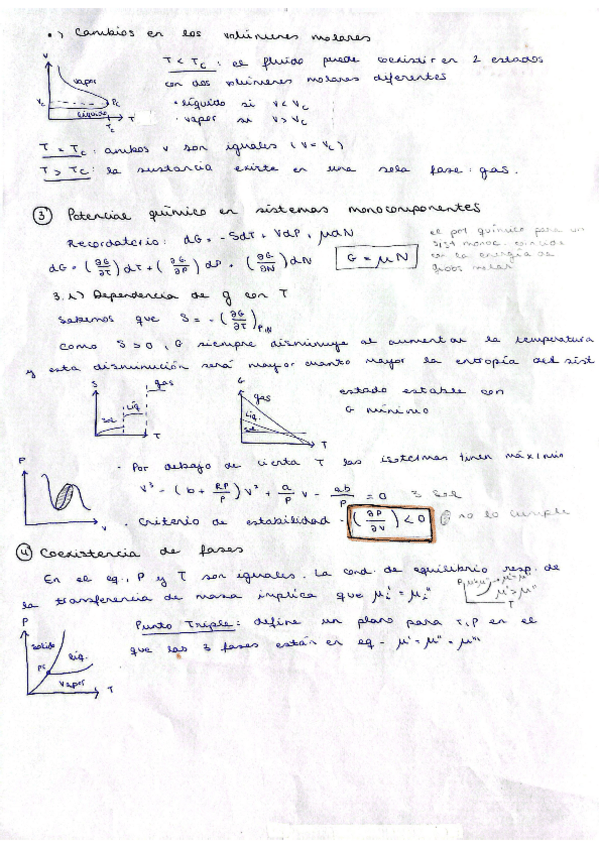 •) Cambios en los volúmenes molares
T < Tc : el fluido puede coexistir en 2 estados
con dos volúmenes molares diferentes
• líquido si v < vc
• vapor si v > vc
V
vapor
Vc
Pc
líquido
T
Tc
T = Tc : ambos v son iguales (v = vc)
T > Tc : la sustancia existe en una sola fase: gas.
③ Potencial químico en sistemas monocomponentes
Recordatorio: dG = -SdT + VdP + μdN
dG = (∂G/∂T) dT + (∂G/∂P) dP + (∂G/∂N) dN
G = μN
el pot químico para un
sist monoc. coincide
con la energía de
Gibbs molar
3.1) Dependencia de g con T
Sabemos que S = -(∂G/∂T)P,N
Como S > 0, G siempre disminuye al aumentar la temperatura
y esta disminución será mayor cuanto mayor la entropía del sist
S
gas
Líq
Sol
T
G
gas
Líq.
Sol
T
estado estable con
G mínimo
P
v
• Por debajo de cierta T las isotermas tienen máximo
v³ - (b + RT/P) v² + a/P v - ab/P = 0 3 sol
• Criterio de estabilidad = (∂P/∂v) < 0
no lo cumple
④ Coexistencia de fases
En el eq., P y T son iguales. La cond. de equilibrio resp. de
la transferencia de masa implica que μi' = μi''
P
μ'<μ''
μ'=μ''
μ'>μ''
T
Punto Triple: define un plano para T,P en el
que las 3 fases están en eq - μ' = μ'' = μ'''
P
sólido
Líq.
Pt
vapor
T